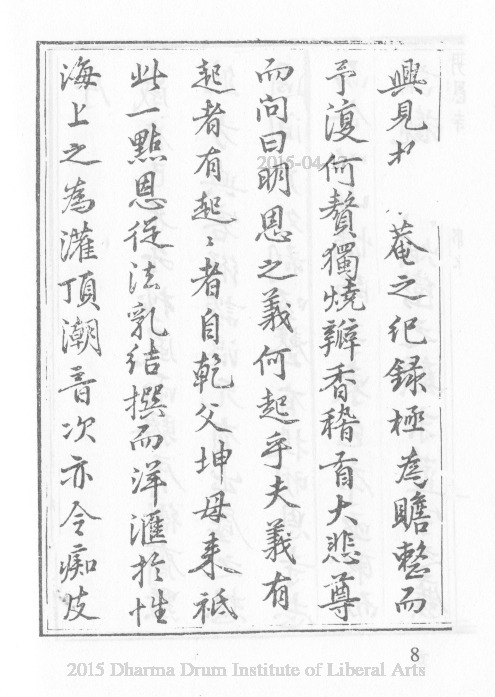 興見於 菴之紀錄極為瞻整而
予復何贅獨燒瓣香稽首大悲尊
而問曰明恩之義何起乎夫義有
起者有起〻者自乾父坤母来祇
此一點恩從法乳結撰而洋滙於性
海上之為灌頂潮音次亦令痴皮
2015-04
8
2015 Dharma Drum Institute of Liberal Arts